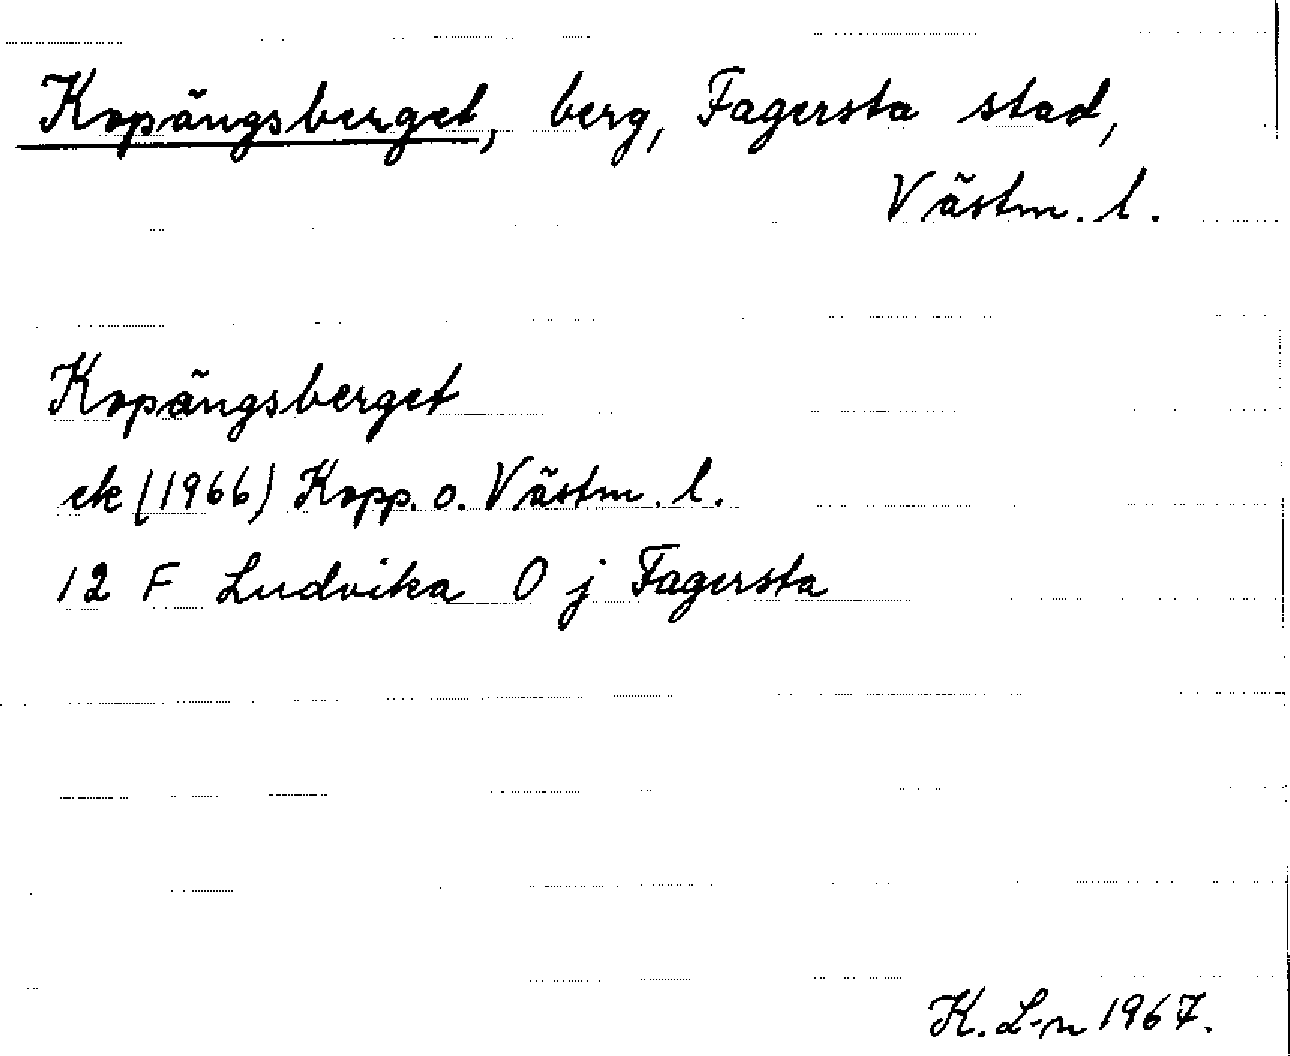 Kopängsberget, berg, Fagersta stad,
Västm. l.
Kopängsberget
ek (1966) Kopp. o. Västm. l.
12 F Ludvika 0 j Fagersta
K. L-n 1967.